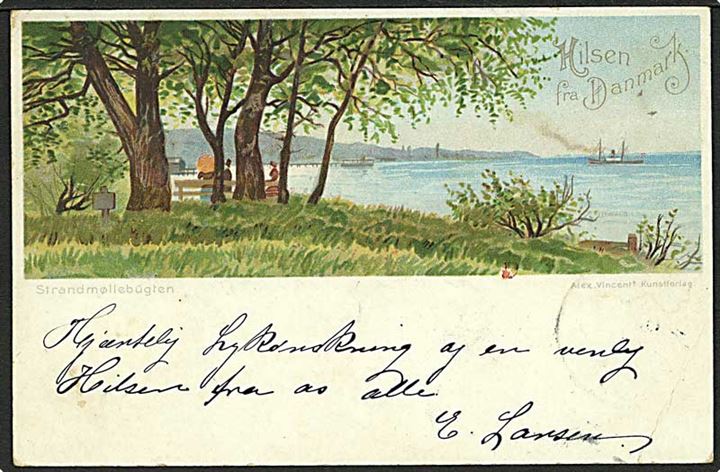 Hilsen
fra Danmark.
Strandmøllebugten.
Alex. Vincent's Kunstforlag
Hjærtelig Lykønskning og en venlig
Hilsen fra os alle
E. Larsen.